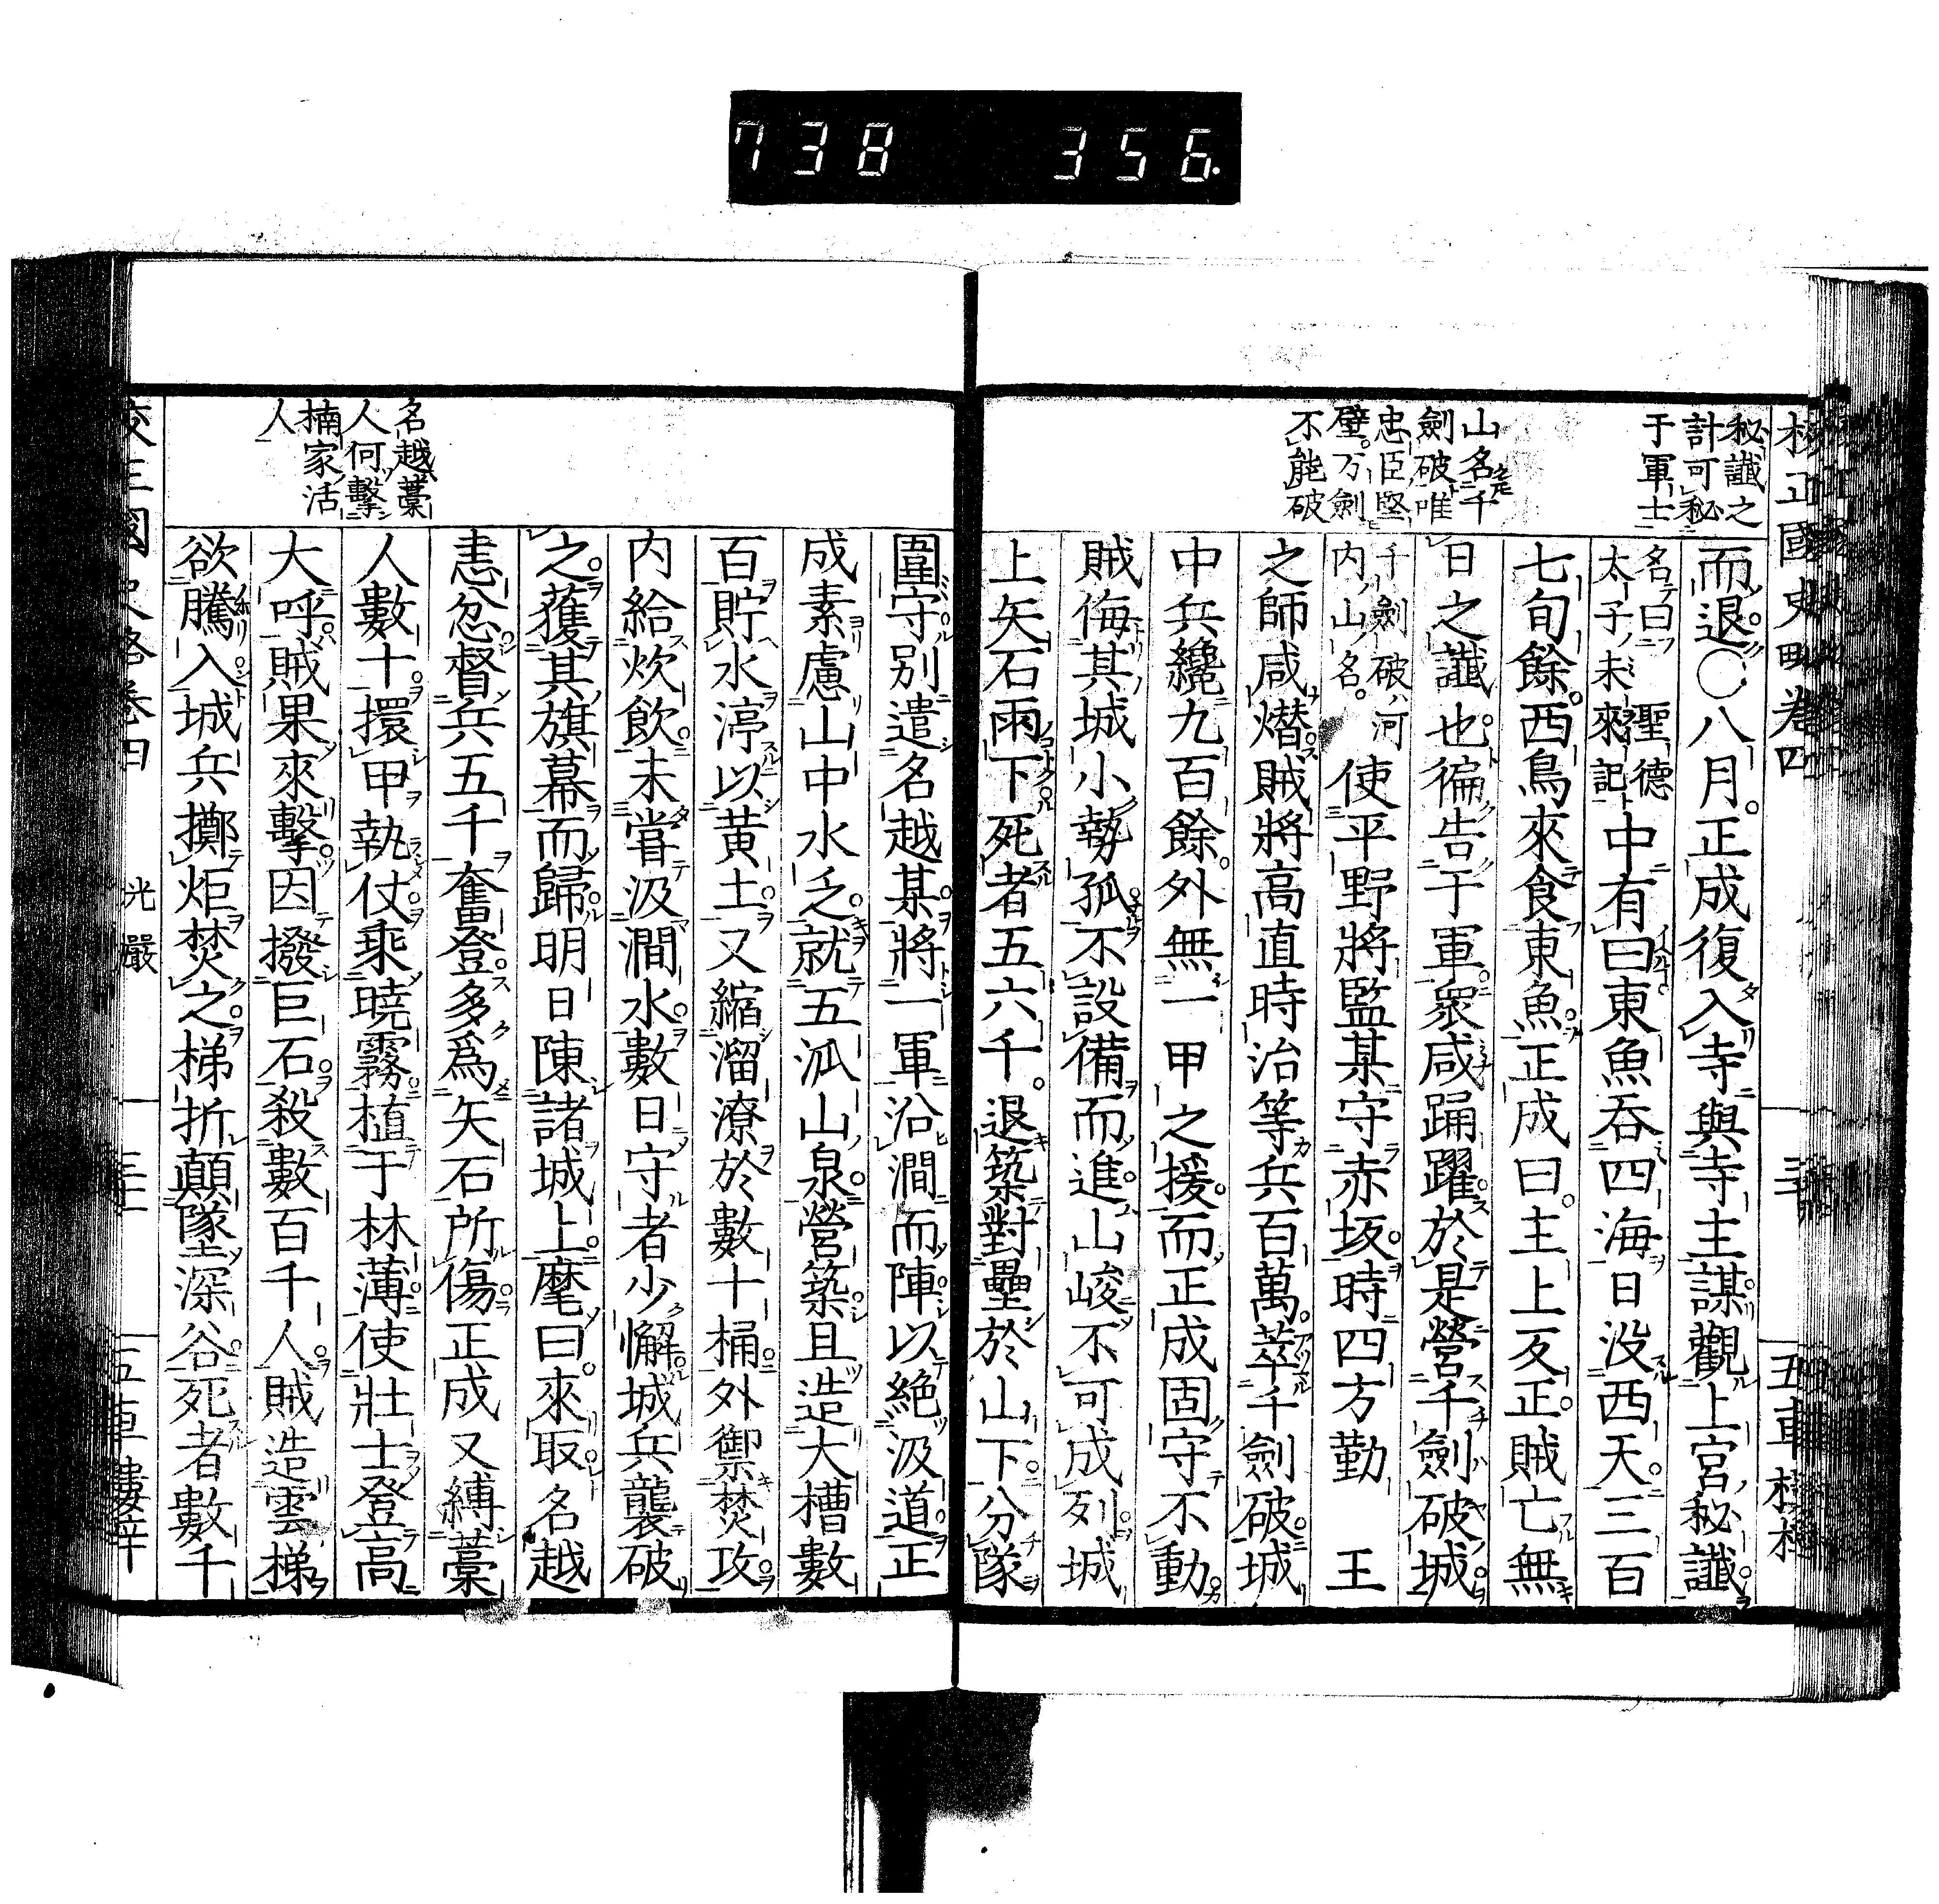 738 356.
校正國史略卷四 三 五車樓梓
秘讖之
計可秘
于軍士
山名千
劍破唯
忠臣堅
壁万劍
不能破
而退〇八月正成復入寺與寺主謀觀上宮秘讖
名曰聖德
太子未來記
中有曰東魚呑四海日没西天三百
七旬餘西鳥來食東魚正成曰主上反正賊亡無
日之讖也徧告于軍衆咸踊躍於是營千劍破城
千劍破河
内山名
使平野將監某守赤坂時四方勤 王
之師咸熸賊將高直時治等兵百萬萃千劍破城
中兵纔九百餘外無一甲之援而正成固守不動
賊侮其城小勢孤不設備而進山峻不可成列城
上矢石雨下死者五六千退築對壘於山下分隊
圍守別遣名越某將一軍沿澗而陣以絶汲道正
成素慮山中水乏就五泒山泉營築且造大槽數
百貯水渟以黄土又縮溜潦於數十桶外禦焚攻
内給炊飲未甞汲澗水數日守者少懈城兵襲破
之獲其旗幕而歸明日陳諸城上麾曰來取名越
恚忿督兵五千奮登多爲矢石所傷正成又縛藁
人數十擐甲執仗乘曉霧植于林薄使壯士登高
大呼賊果來擊因撥巨石殺數百千人賊造雲梯
欲騰入城兵擲炬焚之梯折顛墜深谷死者數千
名越藁
人何擊
楠家活
人
校正國史略卷四 光嚴 三 五車樓梓